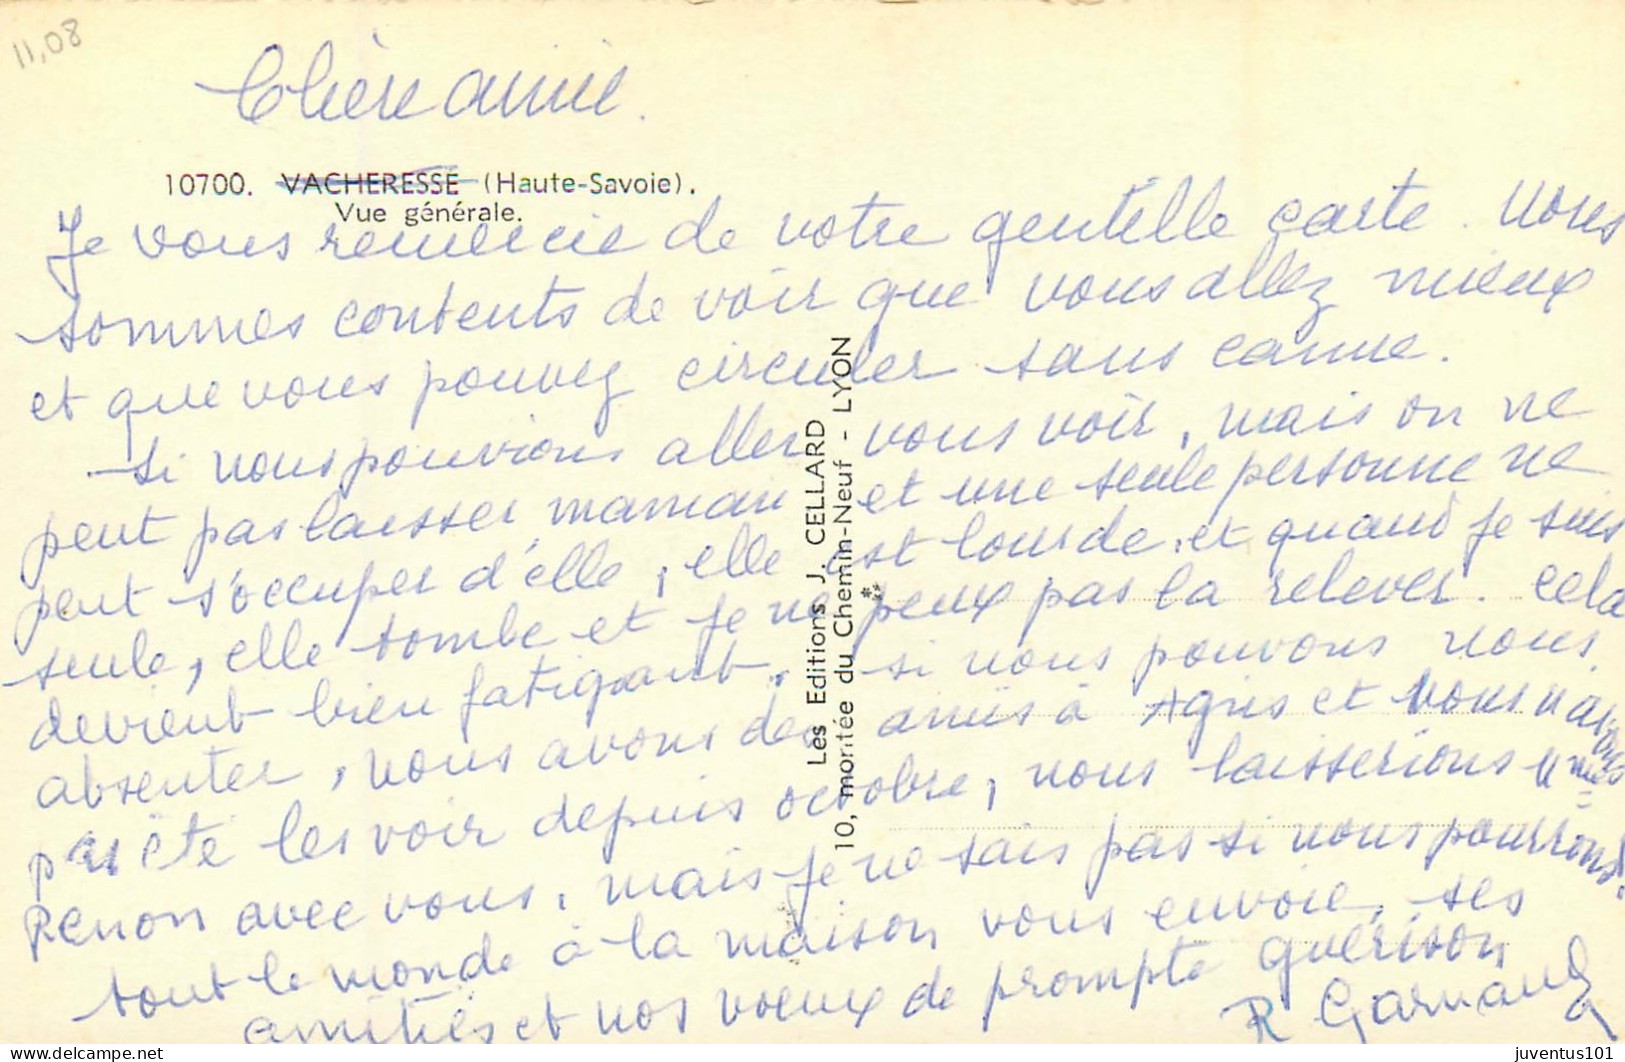 11,08
Chère amie.
10700. VACHERESSE (Haute-Savoie).
Vue générale.
Je vous remercie de votre gentille carte. Nous
sommes contents de voir que vous allez mieux
et que vous pouvez circuler sans canne.
Si nous pouvions aller vous voir, mais on ne
peut pas laisser maman et une seule personne ne
peut s'occuper d'elle, elle est lourde, et quand je suis
seule, elle tombe et je ne peux pas la relever. Cela
devient bien fatigant. si nous pouvons nous
absenter, nous avons des amis à Agris et nous n'avons
pas été les voir depuis octobre, nous laisserions
Renon avec vous, mais je ne sais pas si nous pourrons.
tout le monde à la maison vous envoie, ses
amitiés et nos voeux de prompte guérison
R Garnaud
Les Editions J. CELLARD
10, montée du Chemin-Neuf - LYON
juventus101